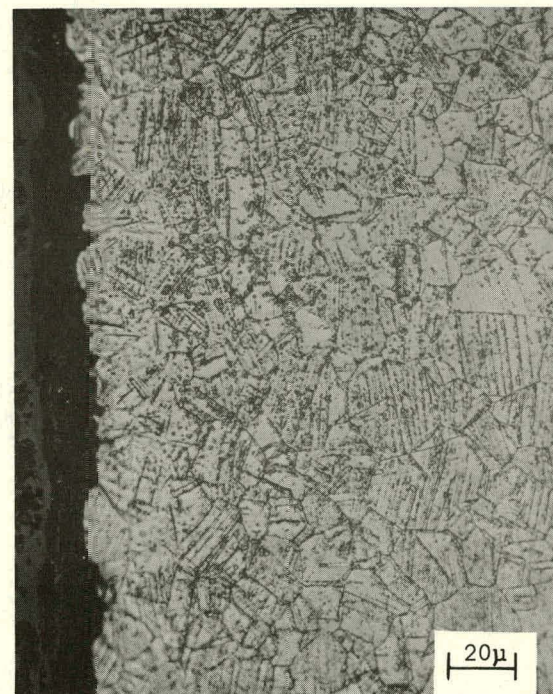 20μ